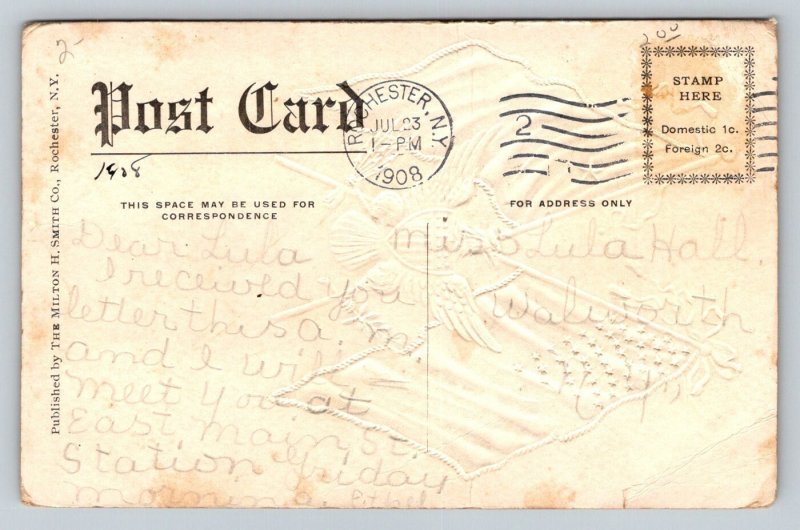 2-
2 00
Post Card
1908
Published by THE MILTON H. SMITH Co., Rochester, N.Y.
ROCHESTER, N.Y.
JUL 23
1-PM
1908
2
STAMP
HERE
Domestic 1c.
Foreign 2c.
THIS SPACE MAY BE USED FOR
CORRESPONDENCE
FOR ADDRESS ONLY
Dear Lula
I received you
letter this a. m.
and I will
meet you at
East Main St.
Station Friday
morning. Ethel
Miss Lula Hall.
Walworth
N.Y.